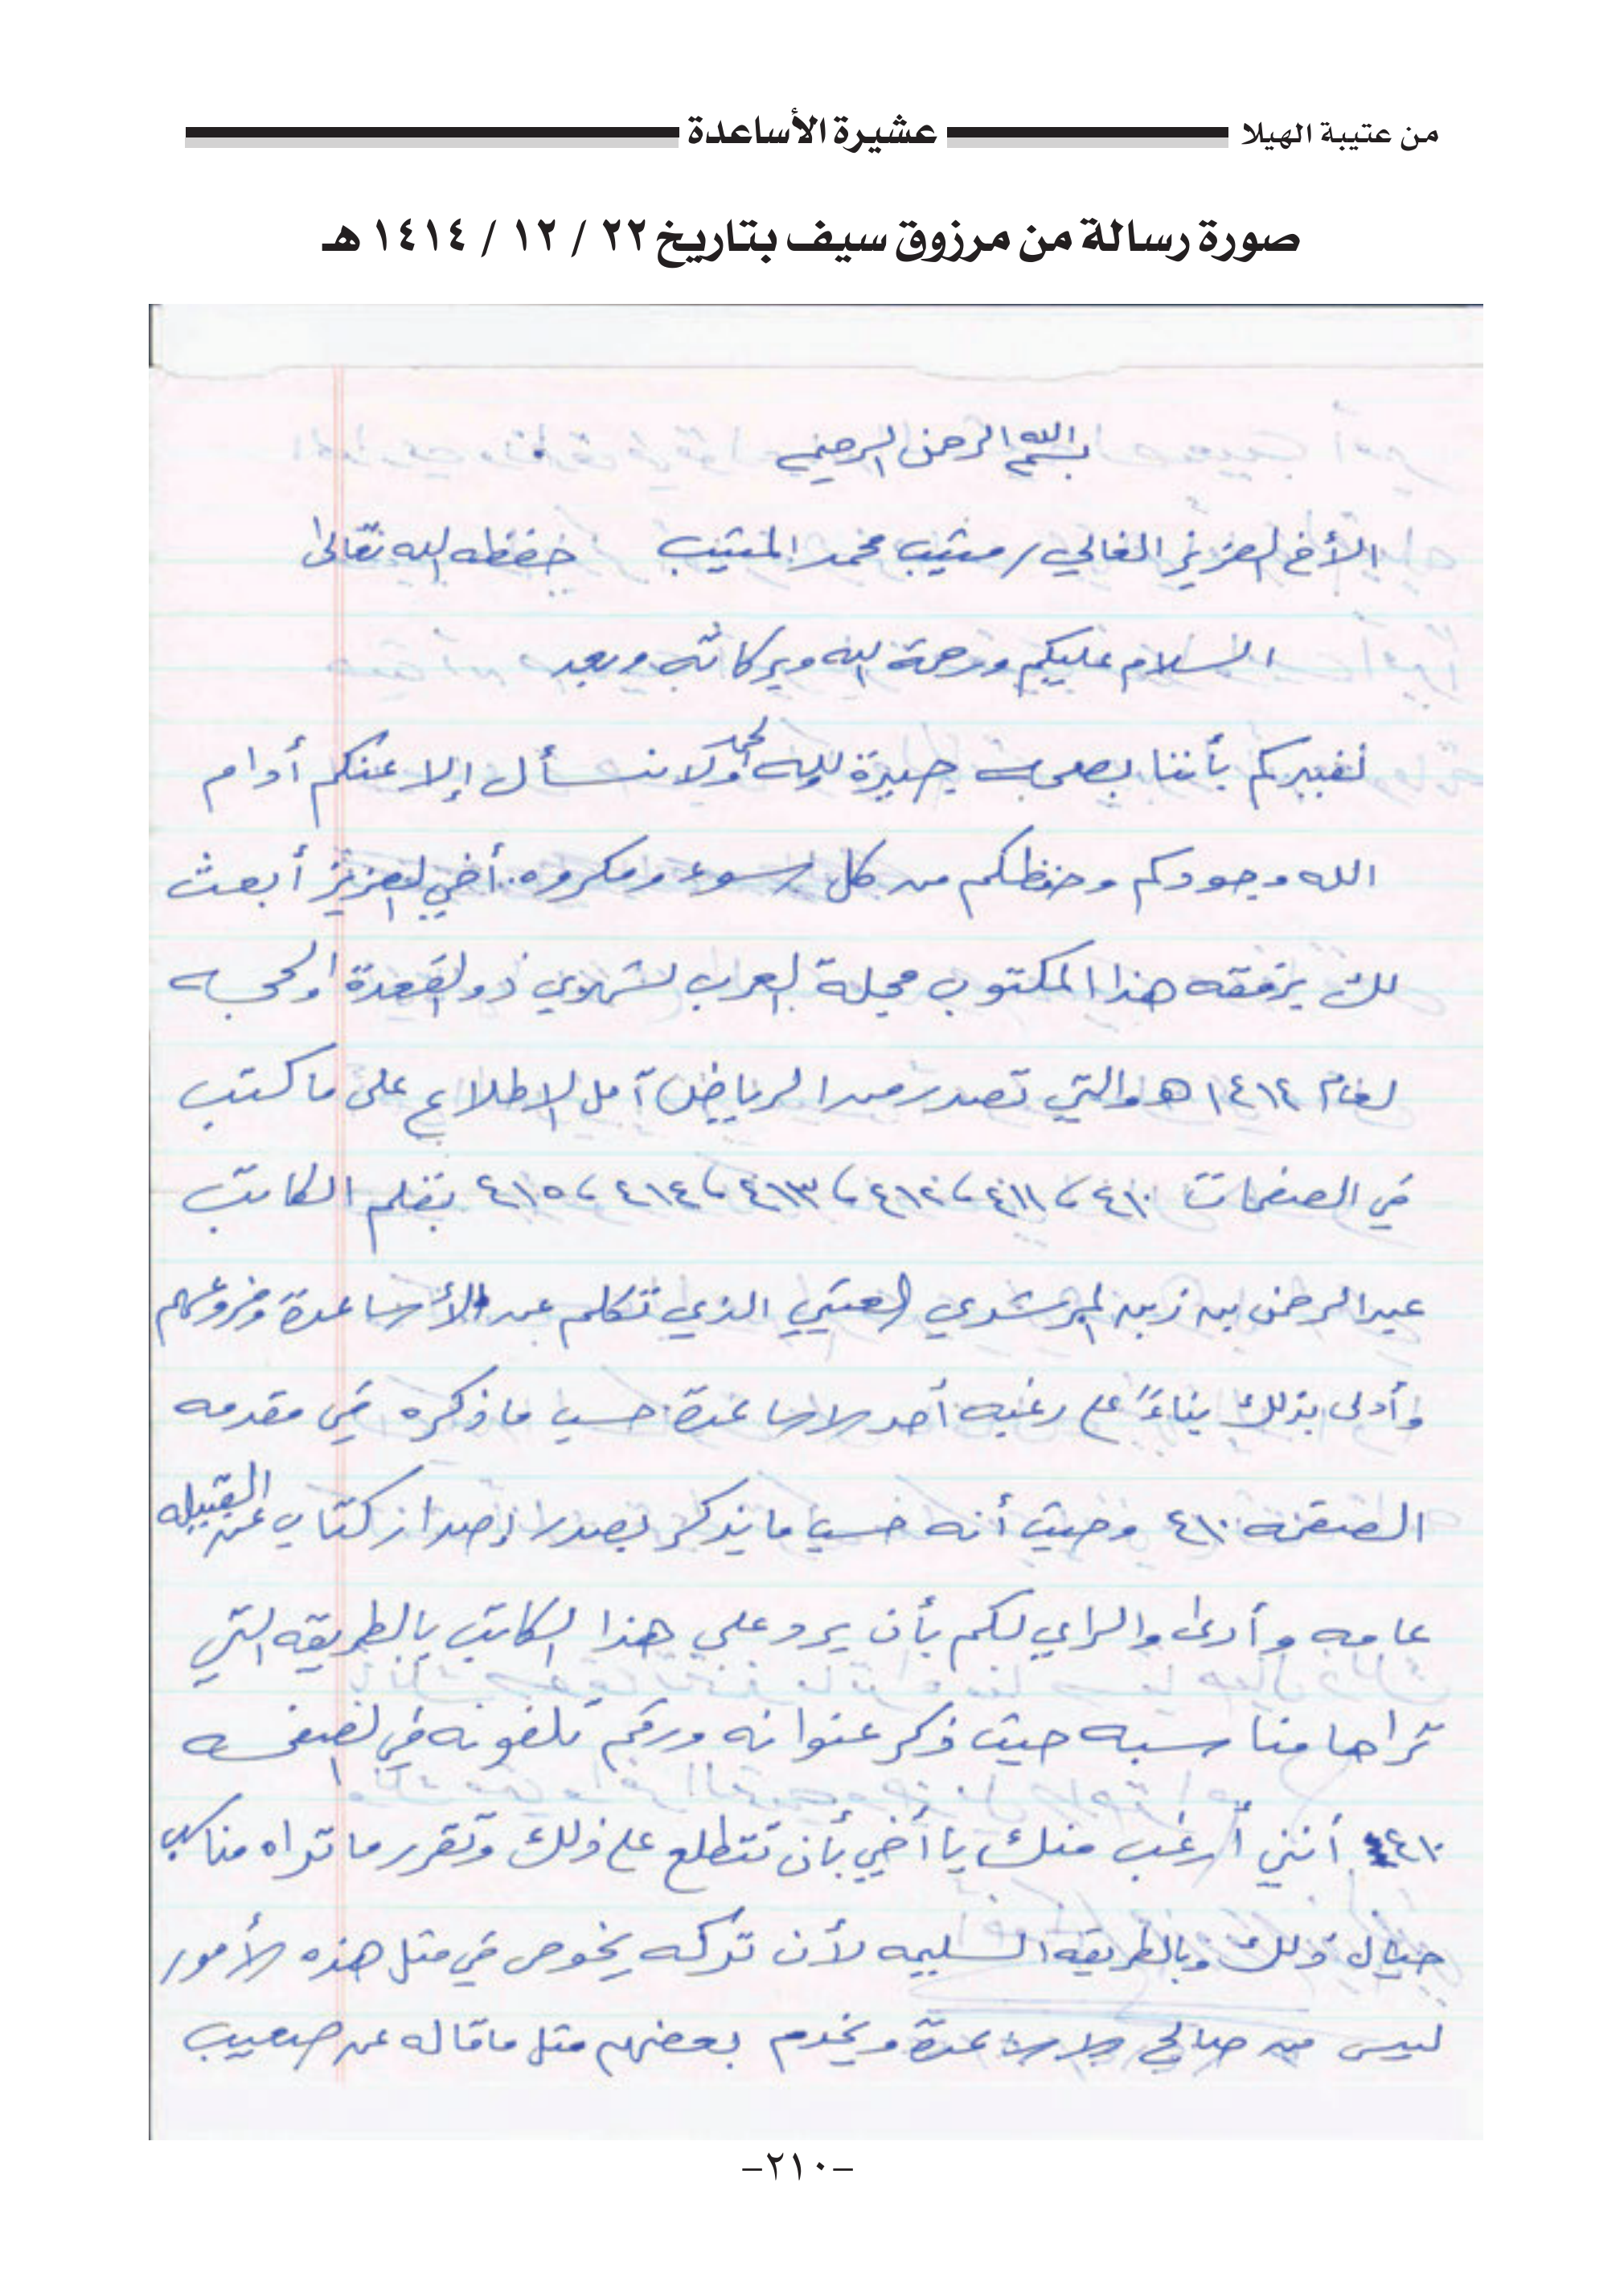 من عتيبة الهيلا عشيرة الأساعدة
صورة رسالة من مرزوق سيف بتاريخ ٢٢ / ١٢ / ١٤١٤ هـ
بسم الله الرحمن الرحيم
الأخ العزيز الغالي / متيب محمد المتيب حفظه الله تعالى
السلام عليكم ورحمة الله وبركاته وبعد
نخبركم بأننا بصحبه جيدة ولله الحمد ولا نسأل إلا عنكم أدام
الله وجودكم وحفظكم من كل سوء ومكروه. أخي العزيز أبعث
لك برفقه هذا المكتوب مجلة العرب لشهري ذو القعدة والحجه
لعام ١٤١٤ هـ والتي تصدر من الرياض آمل الإطلاع على ما كتب
في الصفحات ٤١٠، ٤١١، ٤١٢، ٤١٣، ٤١٤، ٤١٥ بقلم الكاتب
عبدالرحمن بن زبن المرشدي العتيبي الذي تكلم عن الأساعدة وفروعهم
وأدلى بذلك بناءً على رغبه أحد الاساعدة حسب ما ذكره في مقدمه
الصفحه ٤١٠ وحيث أنه حسب ما يذكر بصدد إصدار كتاب عن القبيله
عامه وأرى والراي لكم بأن يرد على هذا الكاتب بالطريقه التي
تراها مناسبه حيث ذكر عنوانه ورقم تلفونه في الصفحه
٤١٠ أنني أرغب منك يا أخي بأن تتطلع على ذلك وتقرر ما تراه مناسب
حيال ذلك وبالطريقه السليمه لأن تركه يخوص في مثل هذه الأمور
ليس من صالح الاساعدة ويخدم بعضهم مثل ما قاله عن صعيب
-٢١٠-